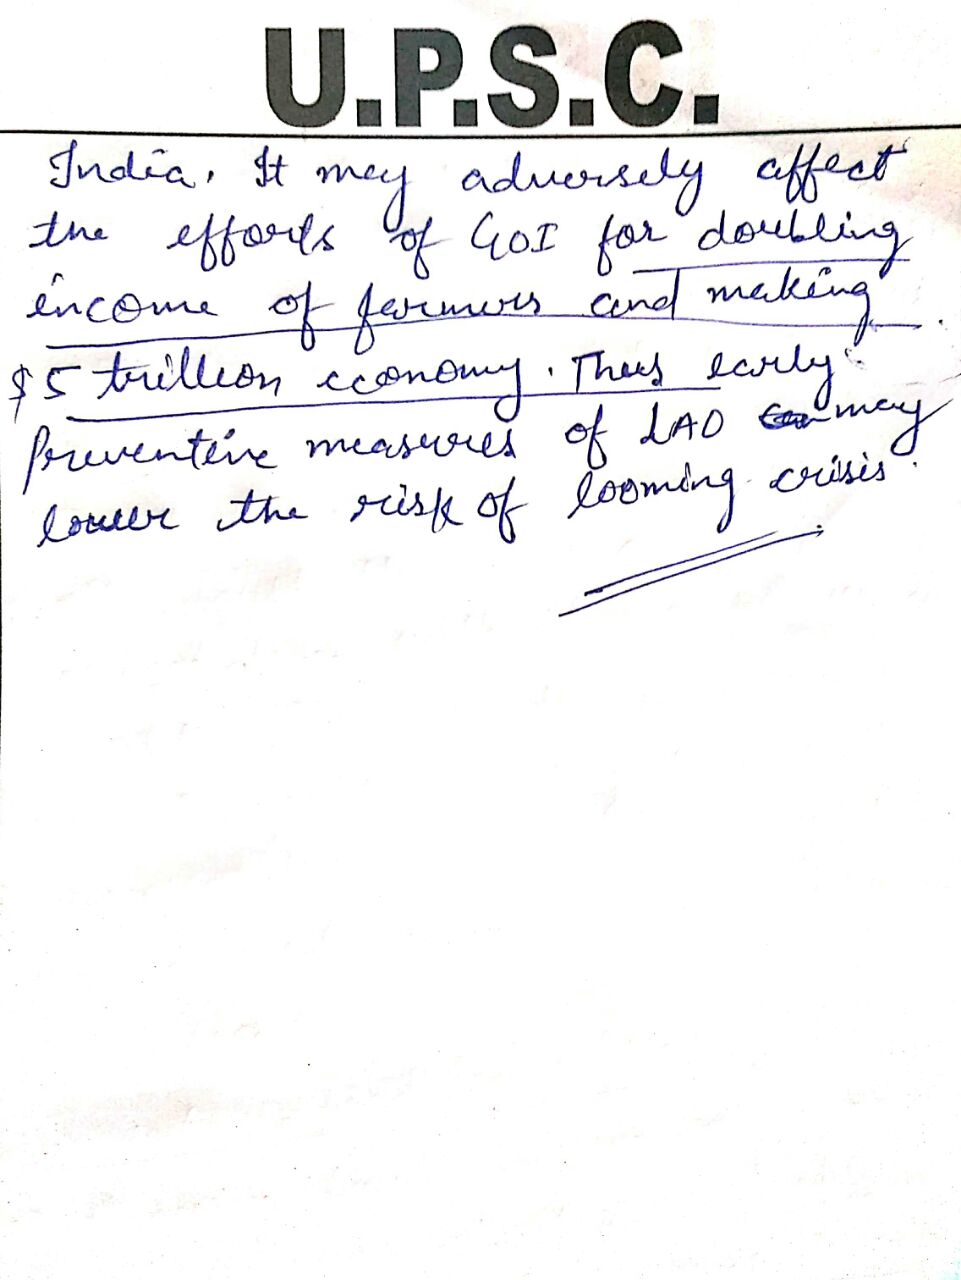 U.P.S.C.
India. It may adversely affect
the efforts of GOI for doubling
income of farmers and making
$5 trillion economy. Thus early
preventive measures of LAO may
lower the risk of looming crisis.